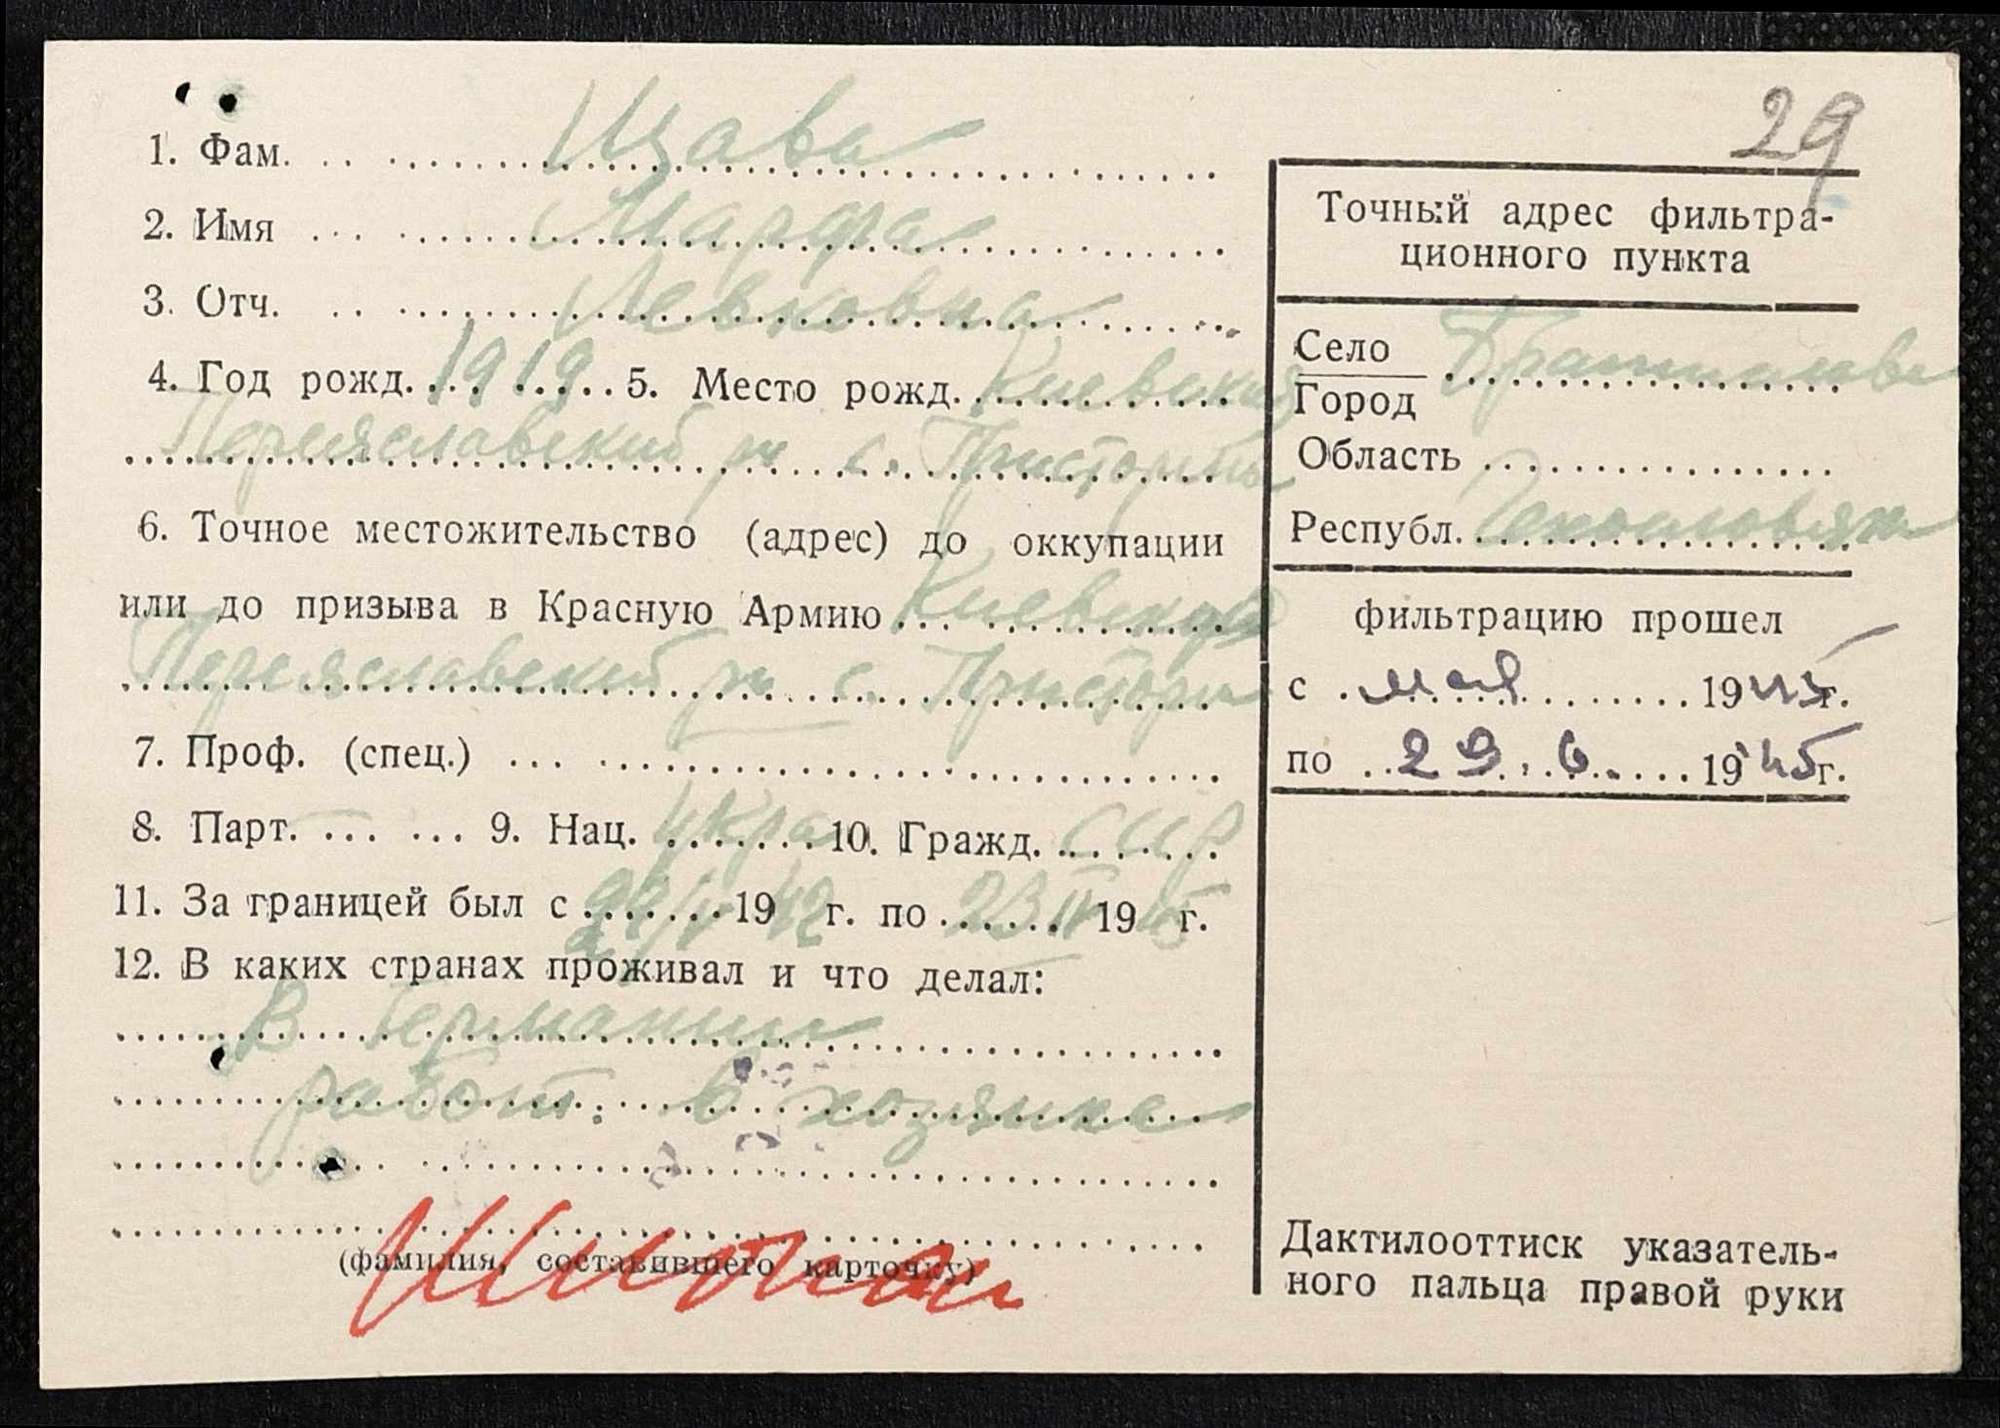 29
1. Фам. Щава
2. Имя Марфа
3. Отч. Левковна
4. Год рожд. 1919 5. Место рожд. Киевская
Переяславский рн с. Пристромы
6. Точное местожительство (адрес) до оккупации
или до призыва в Красную Армию Киевская
Переяславский рн с. Пристром
7. Проф. (спец.)
8. Парт. — 9. Нац. укра 10. Гражд. СССР
11. За границей был с 1942 г. по 23 IV 1945 г.
12. В каких странах проживал и что делал:
В Германии
работ. в хозяике
(фамилия, составившего карточку)
Точный адрес фильтра-
ционного пункта
Село Братислава
Город
Область
Республ.
фильтрацию прошел
с мая 1945 г.
по 29.6. 1945 г.
Дактилооттиск указатель-
ного пальца правой руки